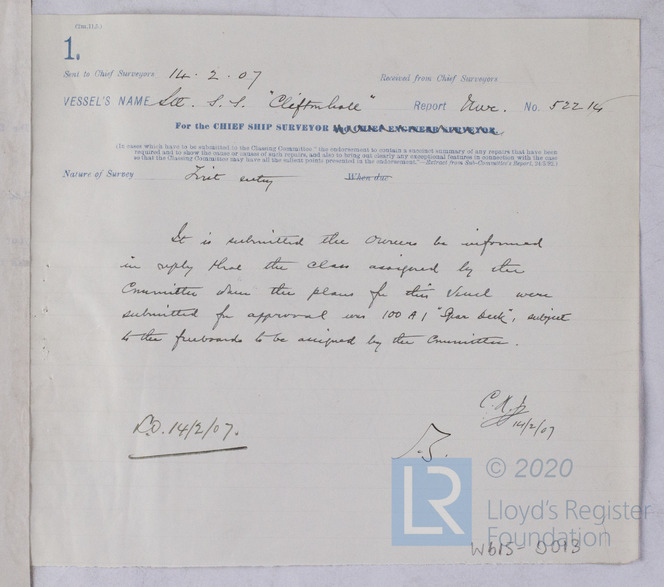 1.
Sent to Chief Surveyors 14.2.07 Received from Chief Surveyors
VESSEL'S NAME S.S. "Cliftonhall" Report Nwc. No. 52214
For the CHIEF SHIP SURVEYOR and CHIEF ENGINEER SURVEYOR.
(In cases which have to be submitted to the Classing Committee "the endorsement to contain a succinct summary of any repairs that have been
required and to show the cause or causes of such repairs, and also to bring out clearly any exceptional features in connection with the case
so that the Classing Committee may have all the salient points presented in the endorsement."—Extract from Sub-Committee's Report, 24.5.92.)
Nature of Survey First entry When due
It is submitted the Owners be informed
in reply that the class assigned by the
Committee when the plans for this Vessel were
submitted for approval was 100 A 1 "Spar Deck", subject
to the freeboards to be assigned by the Committee.
14/2/07
14/2/07.
LR
© 2020
Lloyd's Register
Foundation
W615-0013